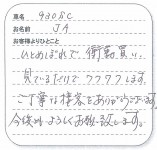 県名 gao8c
お名前 JA
お客様よりひとこと
ひとめぼれで、衝動買い。
見ているだけでワクワクします。
ご丁寧な接客をありがとうございます。
今後ともよろしくお願い致します。